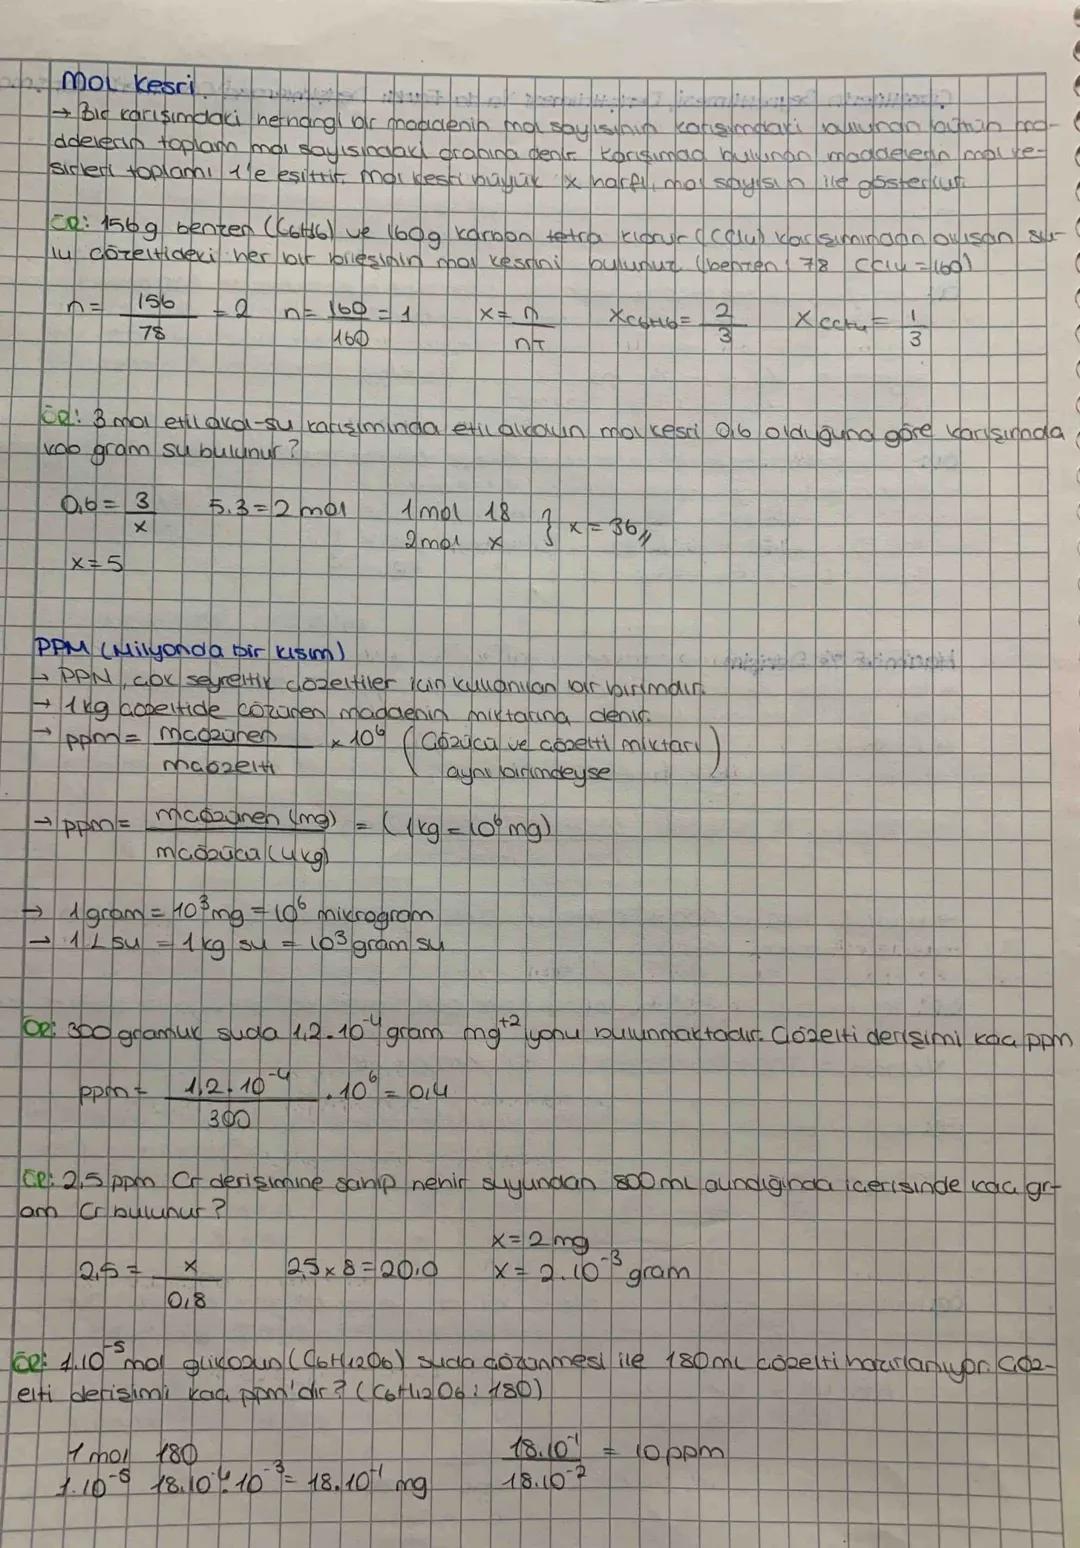 Mol kesri
→ Bir karışımdaki herhangi bir maddenin mol sayısının karışımdaki bulunan bütün ma-
ddelerin toplam mol sayısındaki oranına denir. Karışımda bulunan maddelerin mol ke-
sirleri toplamı 1'e eşittir. Mol kesri büyük x harfi, mol sayısı n ile gösterilir.
ÖR: 156g benzen (C6H6) ve 160g karbon tetra klorür (CCl4) karışımından oluşan sı-
lu çözeltideki her bir bileşinin mol kesrini bulunuz (benzen: 78 CCl4=160)
n= 156/78 = 2 n= 160/160 = 1 x= n/nT XC6H6= 2/3 XCCH4= 1/3
ÖR: 3 mol etil alkol-su karışımında etil alkolün mol kesri 0,6 olduğuna göre karışımda
kaç gram su bulunur?
0,6= 3/x 5-3=2 mol 1mol 18
2mol x } x=36//
x=5
PPM (Milyonda bir kısım)
→ PPM, çok seyreltik çözeltiler için kullanılan bir birimdir.
→ 1kg çözeltide çözünen maddenin miktarına denir.
→ ppm= mçözünen/mçözelti x 10⁶ (Çözücü ve çözelti miktarı
aynı birimdeyse)
→ ppm= mçözünen (mg)/mçözücü (kg) = (1kg=10⁶ mg)
→ 1 gram = 10³ mg = 10⁶ mikrogram
→ 1 L su = 1 kg su = 10³ gram su
ÖR: 300 gramlık suda 1,2.10⁻⁴ gram mg⁺² iyonu bulunmaktadır. Çözelti derişimi kaç ppm
ppm= 1,2.10⁻⁴/300 . 10⁶ = 0,4
ÖR: 2,5 ppm Cr derişimine sahip nehir suyundan 800 mL alındığında içerisinde kaç gr-
am Cr bulunur?
x=2mg
2,5= x/0,8 25x8=20,0 x=2.10⁻³ gram
ÖR: 1.10⁻⁵ mol glikozun (C6H12O6) suda çözünmesi ile 180mL çözelti hazırlanıyor. Çöz-
elti derişimi kaç ppm'dir? (C6H12O6: 180)
1 mol 180 18.10⁻¹/18.10⁻² = 10 ppm
1.10⁻⁵ 18.10⁻⁴.10⁻³= 18.10⁻¹ mg